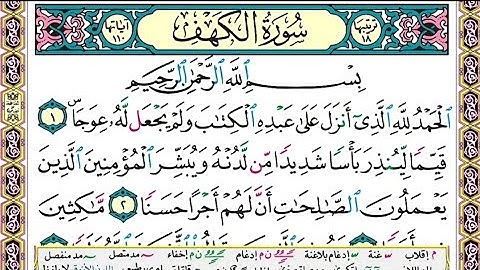 ترتيبها ١٨
سُورَةُ الكَهْفِ
آياتها ١١٠
بِسْمِ اللَّهِ الرَّحْمَٰنِ الرَّحِيمِ
الْحَمْدُ لِلَّهِ الَّذِي أَنْزَلَ عَلَىٰ عَبْدِهِ الْكِتَابَ وَلَمْ يَجْعَلْ لَهُ عِوَجًا ١
قَيِّمًا لِيُنْذِرَ بَأْسًا شَدِيدًا مِنْ لَدُنْهُ وَيُبَشِّرَ الْمُؤْمِنِينَ الَّذِينَ
يَعْمَلُونَ الصَّالِحَاتِ أَنَّ لَهُمْ أَجْرًا حَسَنًا ٢ مَاكِثِينَ
م إقلاب س غنة إدغام بلاغنة ن م إدغام إخفاء مد متصل مد منفصل